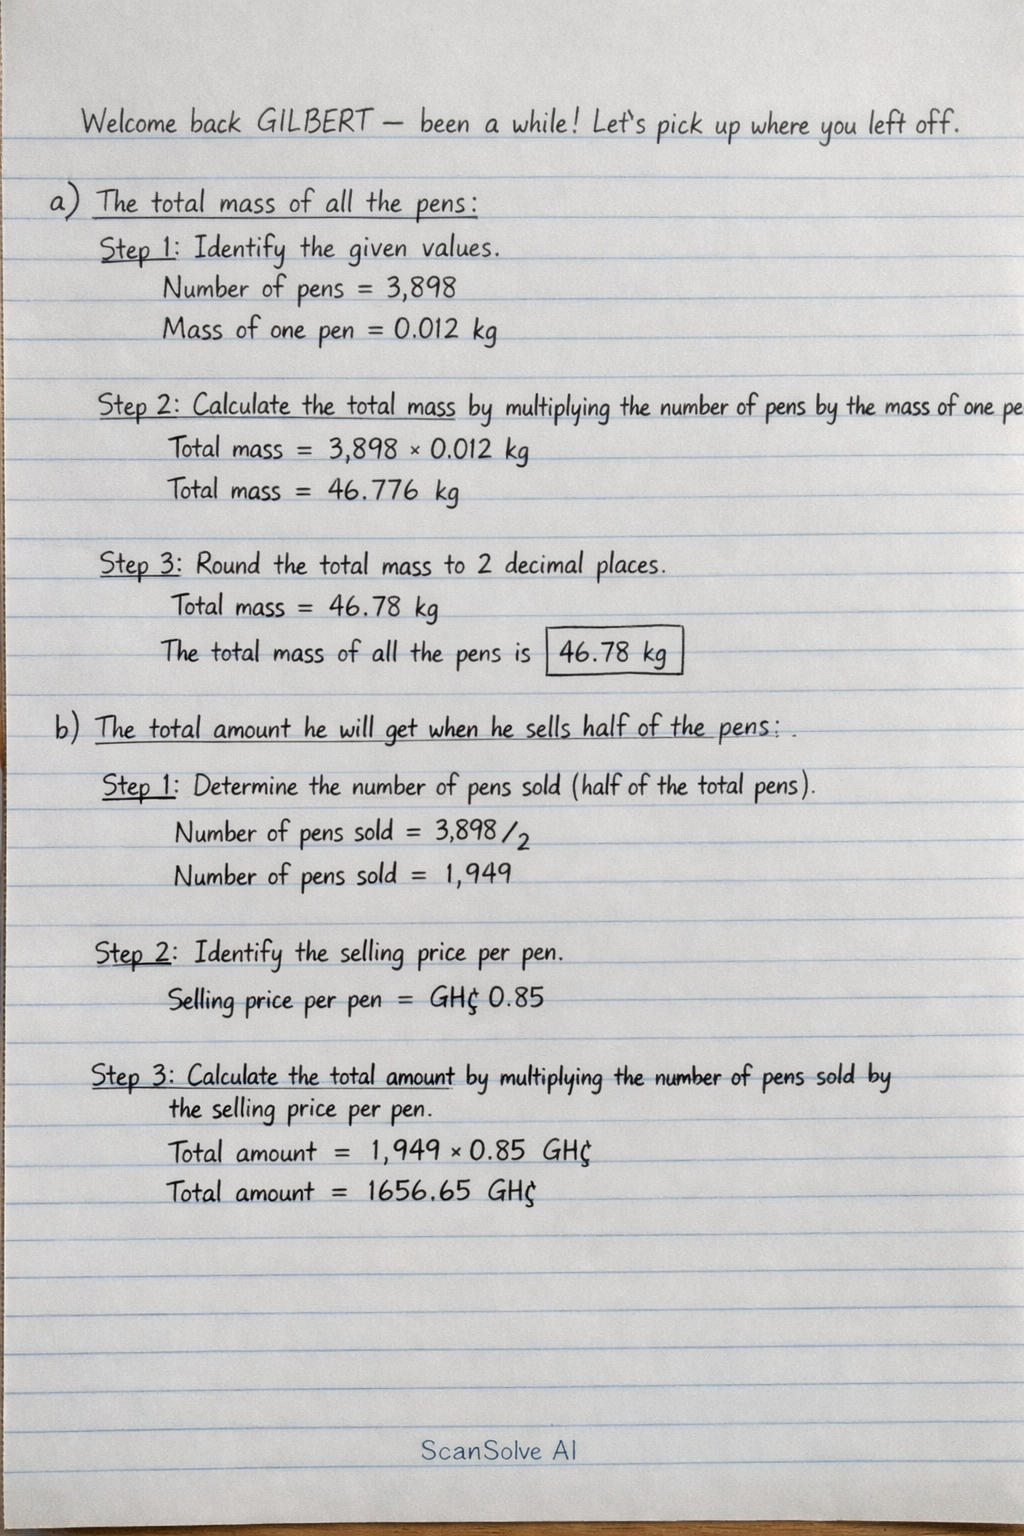 Welcome back GILBERT — been a while! Let's pick up where you left off.
a) The total mass of all the pens:
Step 1: Identify the given values.
Number of pens = 3,898
Mass of one pen = 0.012 kg
Step 2: Calculate the total mass by multiplying the number of pens by the mass of one pe
Total mass = 3,898 × 0.012 kg
Total mass = 46.776 kg
Step 3: Round the total mass to 2 decimal places.
Total mass = 46.78 kg
The total mass of all the pens is 46.78 kg
b) The total amount he will get when he sells half of the pens: .
Step 1: Determine the number of pens sold (half of the total pens).
Number of pens sold = 3,898/2
Number of pens sold = 1,949
Step 2: Identify the selling price per pen.
Selling price per pen = GH₵ 0.85
Step 3: Calculate the total amount by multiplying the number of pens sold by
the selling price per pen.
Total amount = 1,949 × 0.85 GH₵
Total amount = 1656.65 GH₵
ScanSolve AI